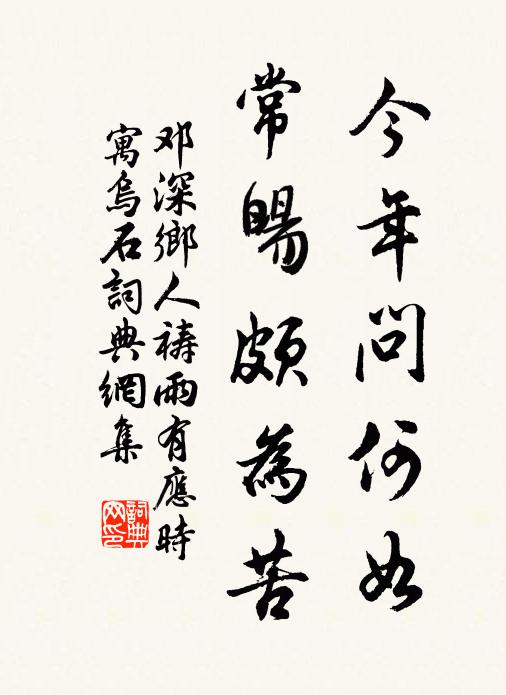 今年問何如
常暘頗為苦
邓深鄉人祷雨有應時
寓烏石詞典網集
詞典网印